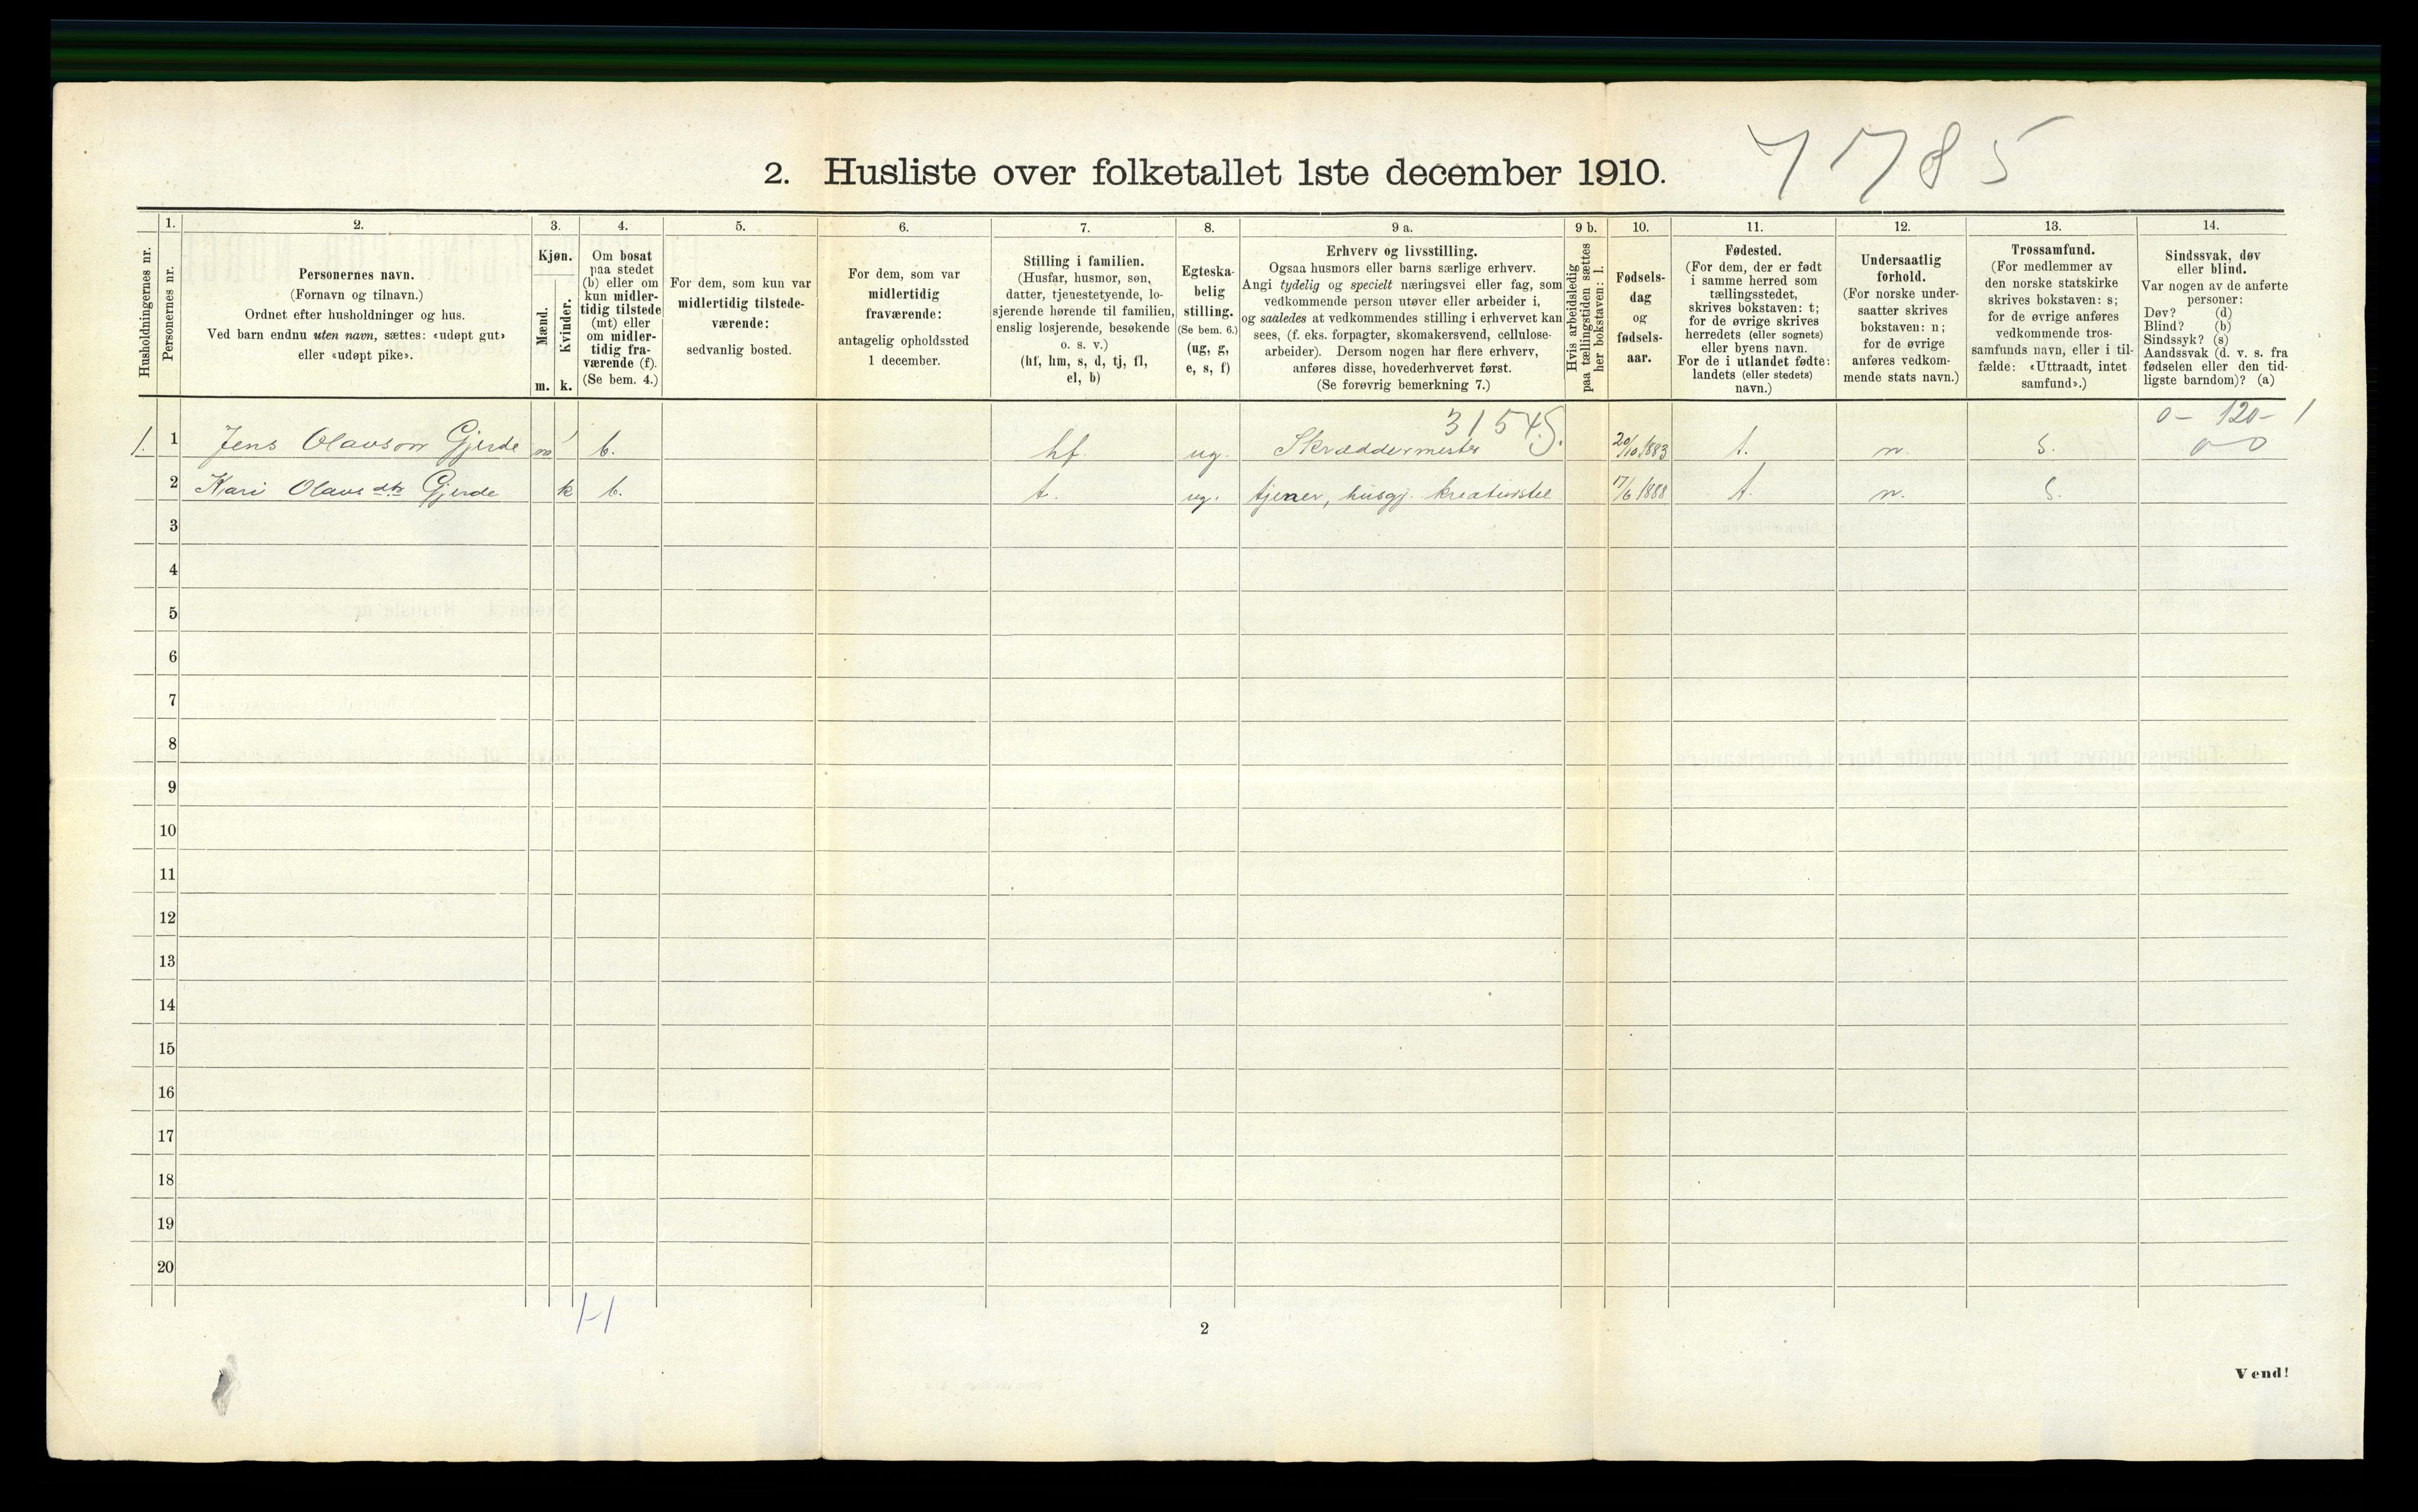 7785
2. Husliste over folketallet 1ste december 1910.
Husholdningernes nr.
1.
Personernes nr.
2.
Personernes navn.
(Fornavn og tilnavn.)
Ordnet efter husholdninger og hus.
Ved barn endnu uten navn, sættes: «udøpt gut»
eller «udøpt pike».
3.
Kjøn.
Mænd.
Kvinder.
m. k.
4.
Om bosat
paa stedet
(b) eller om
kun midler-
tidig tilstede
(mt) eller
om midler-
tidig fra-
værende (f).
(Se bem. 4.)
5.
For dem, som kun var
midlertidig tilstede-
værende:
sedvanlig bosted.
6.
For dem, som var
midlertidig
fraværende:
antagelig opholdssted
1 december.
7.
Stilling i familien.
(Husfar, husmor, søn,
datter, tjenestetyende, lo-
sjerende hørende til familien,
enslig losjerende, besøkende
o. s. v.)
(hf, hm, s, d, tj, fl,
el, b)
8.
Egteska-
belig
stilling.
(Se bem. 6.)
(ug, g,
e, s, f)
9 a.
Erhverv og livsstilling.
Ogsaa husmors eller barns særlige erhverv.
Angi tydelig og specielt næringsvei eller fag, som
vedkommende person utøver eller arbeider i,
og saaledes at vedkommendes stilling i erhvervet kan
sees, (f. eks. forpagter, skomakersvend, cellulose-
arbeider). Dersom nogen har flere erhverv,
anføres disse, hovederhvervet først.
(Se forøvrig bemerkning 7.)
9 b.
Hvis arbeidsledig
paa tællingstiden sættes
her bokstaven: l.
10.
Fødsels-
dag
og
fødsels-
aar.
11.
Fødested.
(For dem, der er født
i samme herred som
tællingsstedet,
skrives bokstaven: t;
for de øvrige skrives
herredets (eller sognets)
eller byens navn.
For de i utlandet fødte:
landets (eller stedets)
navn.)
12.
Undersaatlig
forhold.
(For norske under-
saatter skrives
bokstaven: n;
for de øvrige
anføres vedkom-
mende stats navn.)
13.
Trossamfund.
(For medlemmer av
den norske statskirke
skrives bokstaven: s;
for de øvrige anføres
vedkommende tros-
samfunds navn, eller i til-
fælde: «Uttraadt, intet
samfund».)
14.
Sindssvak, døv
eller blind.
Var nogen av de anførte
personer:
Døv? (d)
Blind? (b)
Sindssyk? (s)
Aandssvak (d. v. s. fra
fødselen eller den tid-
ligste barndom)? (a)
0 - 120 - 1
0 0
1. 1 Jens Olavson Gjerde m b. hf. ug. Skræddermester S. 20/10 1883 t. n. s.
2 Kari Olavsdtr Gjerde k b. t. ug. tjener, husgj. kreaturstel 17/6 1888 t. n. s.
3
4
5
6
7
8
9
10
11
12
13
14
15
16
17
18
19
20
2
Vend!